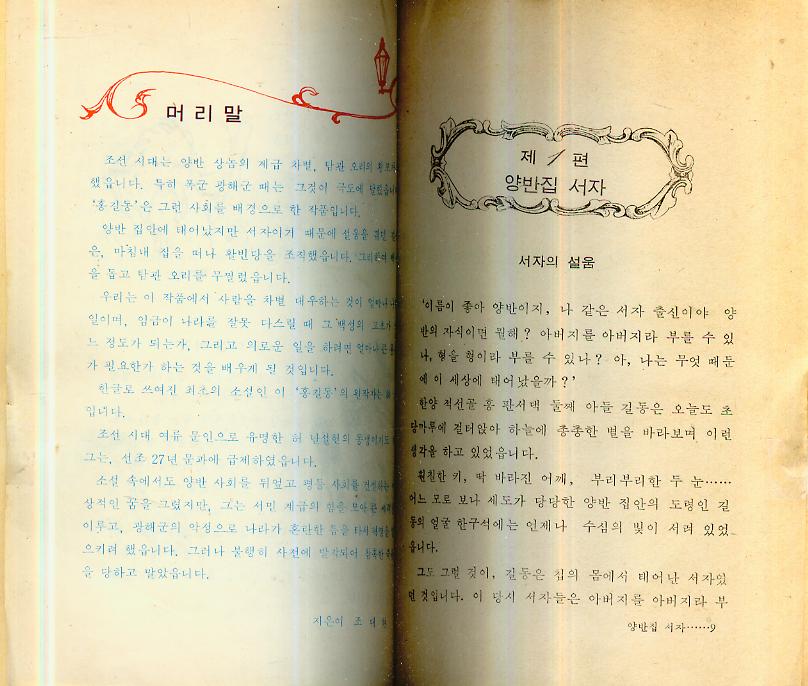 머리말
조선 시대는 양반 상놈의 계급 차별, 탐관 오리의
했읍니다. 특히 폭군 광해군 때는 그것이 극도에
'홍길동'은 그런 사회를 배경으로 한 작품입니다.
양반 집안에 태어났지만 서자이기 때문에 설움을
은, 마침내 집을 떠나 활빈당을 조직했읍니다. 그리하여
을 돕고 탐관 오리를 무찔렀읍니다.
우리는 이 작품에서 사람을 차별 대우하는 것이 얼마나
일이며, 임금이 나라를 잘못 다스릴 때 그 백성의 고초가
느 정도가 되는가, 그리고 의로운 일을 하려면 얼마나 큰
가 필요한가 하는 것을 배우게 된 것입니다.
한글로 쓰여진 최초의 소설인 이 '홍길동'의 원작자는
입니다.
조선 시대 여류 문인으로 유명한 허 난설헌의 동생이기도
그는, 선조 27년 문과에 급제하였읍니다.
소설 속에서도 양반 사회를 뒤엎고 평등 사회를 건설하는
상적인 꿈을 그렸지만, 그는 서민 계급의 힘을 모아
이루고, 광해군의 악정으로 나라가 혼란한 틈을 타서
으키려 했읍니다. 그러나 불행히 사전에 발각되어
을 당하고 말았읍니다.
지은이 조 대 현
제 1 편
양반집 서자
서자의 설움
'이름이 좋아 양반이지, 나 같은 서자 출신이야 양
반의 자식이면 뭘해? 아버지를 아버지라 부를 수 있
나, 형을 형이라 부를 수 있나? 아, 나는 무엇 때문
에 이 세상에 태어났을까?'
한양 적선골 홍 판서댁 둘째 아들 길동은 오늘도 초
당마루에 걸터앉아 하늘에 총총한 별을 바라보며 이런
생각을 하고 있었읍니다.
훤칠한 키, 딱 바라진 어깨, 부리부리한 두 눈……
어느 모로 보나 세도가 당당한 양반 집안의 도령인 길
동의 얼굴 한구석에는 언제나 수심의 빛이 서려 있었
읍니다.
그도 그럴 것이, 길동은 첩의 몸에서 태어난 서자였
던 것입니다. 이 당시 서자들은 아버지를 아버지라 부
양반집 서자……9